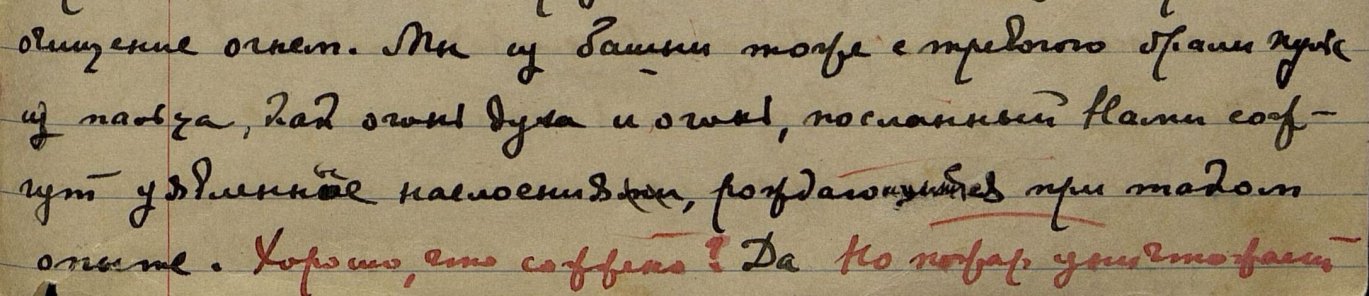 очищение огнем. Мы из башни тоже с тревогою брали пульс
из пальца, как огонь духа и огонь, посланный Нами сож-
гут наслоения, при таком
опыте. Хорошо, что сожжено? Да Но пожар уничтожает